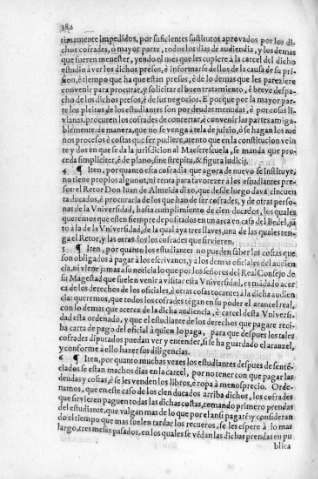 timamente impedidos, por suficientes sustitutos aprovados por los di-
chos cofrades, o mayor parte, todos los dias de audiencia, y los demas
que fueren menester, yendo el mes que les cupiere à la carcel del dicho
estudio à ver los dichos presos, è informarse dellos, de la causa de su pri-
sion, è tiempo que ha que estan presos, è de lo demas que les pareciere
convenir para procurar, y solicitar el buen tratamiento, è breve despa-
cho de los dichos presos, è de sus negocios. E porque por la mayor par-
te los pleitos, de los estudiantes son por deudas menudas, è por cosas li-
vianas, procuren los cofrades de concertar, è convenir las partes amiga-
blemente de manera, que no se venga à tela de juizio, ò se hagan los me
nos procesos è costas que ser pudiere, atento que en la constitucion vein
te y dos en que se dà la jurisdicion al Maestrescuela, se manda que pro-
ceda simpliciter, è de plano, sine strepitu, & figura iudicij.
4. ¶ Iten, por quanto esta cofradia que agora de nuevo se instituye,
no tiene propios algunos, ni renta para favorecer à los estudiantes pre-
sos: el Retor Don Iuan de Almeida dixo, que desde luego dava cincuen
ta ducados, è procuraria de los que han de ser cofrades, y de otras perso-
nas de la Universidad, hasta cumplimiento de cien ducados, los quales
queremos que esten siempre depositados en un arca en casa del Bedel, jũ
to à la de la Universidad, de la qual aya tres llaves, una de las quales ten-
ga el Retor, y las otras los cofrades que sirvieren.
5. ¶ Iten, por quanto los estudiantes no pueden saber las costas que
son obligados à pagar à los escrivanos, y a los demas oficiales del audien
cia, ni viene jamas a su noticia lo que por los señores del Real Consejo de
su Magestad que suelen venir a visitar esta Universidad, es mãdado acer
ca de los derechos de los oficiales, è otras cosas tocantes a la dicha audien
cia: queremos, que todos los cofrades tẽgan en su poder el aranzel real,
con lo demas que acerca de la dicha audiencia, è carcel desta Universi-
dad esta ordenado, y que el estudiante de los derechos que pagare reci-
ba carta de pago del oficial à quien lo paga, para que despues los tales
cofrades diputados puedan ver y entender, si se ha guardado el aranzel,
y conforme à ello hazer sus diligencias.
6. ¶ Iten, por quanto muchas vezes los estudiantes despues de sentẽ-
ciados se estan muchos dias en la carcel, por no tener con que pagar las
deudas y costas, è se les venden los libros, è ropa à menosprecio. Orde-
namos, que en este caso de los cien ducados arriba dichos, los cofrades
que sirvieren paguen todas las dichas costas, tomando primero prendas
del estudiante, que valgan mas de lo que por el ansi pagarè y considerãn
do el tiempo que mas suelen tardar los recueros, se les espere à lo mas
largo, tres meses pasados, en los quales se vẽdan las dichas prendas en pu
blica